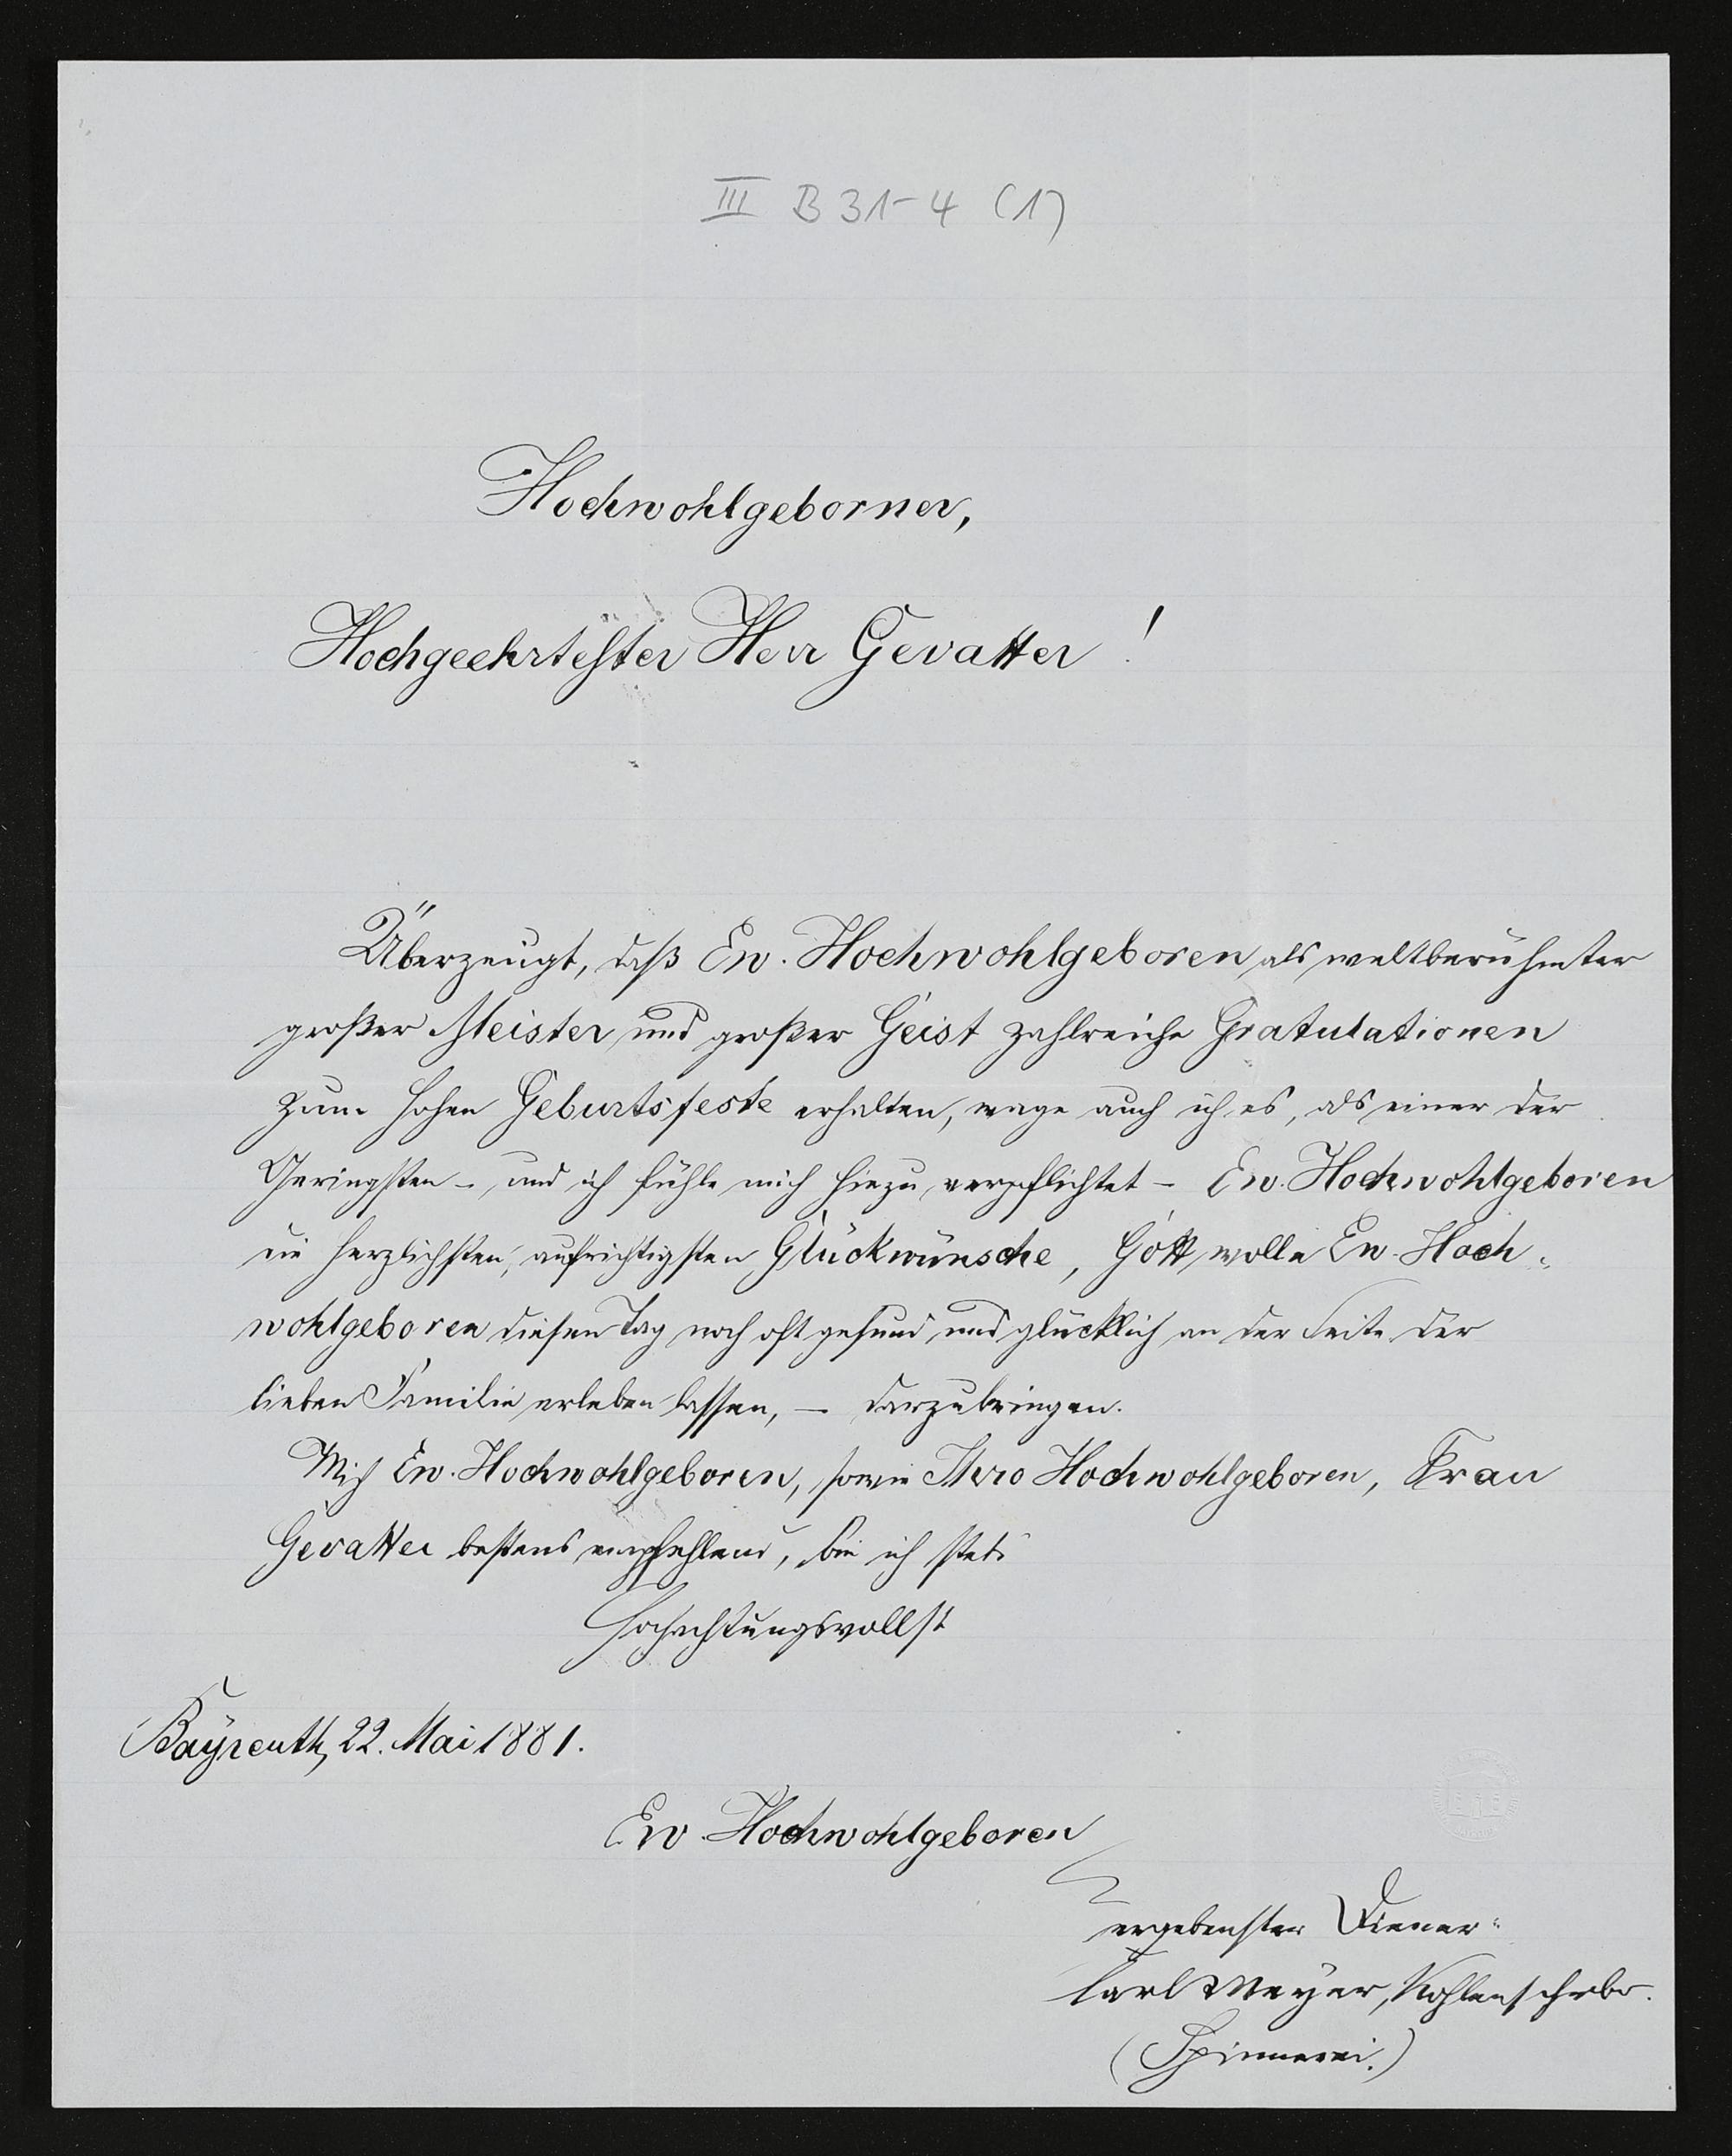 III B 31-4 (1)
Hochwohlgeborner,
Hochgeehrtester Herr Gevatter!
Überzeugt, daß Ew. Hochwohlgeboren als weltberühmter
großer Meister und großer Geist zahlreiche Gratulationen
zum hohen Geburtsfeste erhalten, wage auch ich es, als einer der
Geringsten – und ich fühle mich hiezu verpflichtet – Ew. Hochwohlgeboren
die herzlichsten, aufrichtigsten Glückwünsche, Gott wolle Ew. Hoch-
wohlgeboren diesen Tag noch oft gesund und glücklich an der Seite der
lieben Familie erleben lassen, – darzubringen.
Mich Ew. Hochwohlgeboren, sowie Ihro Hochwohlgeboren, Frau
Gevatter bestens empfehlend, bin ich stets
Hochachtungsvollst
Bayreuth, 22. Mai 1881.
Ew. Hochwohlgeboren
ergebenster Diener
Carl Meyer, Kohlenschrbr.
(Spinnerei.)